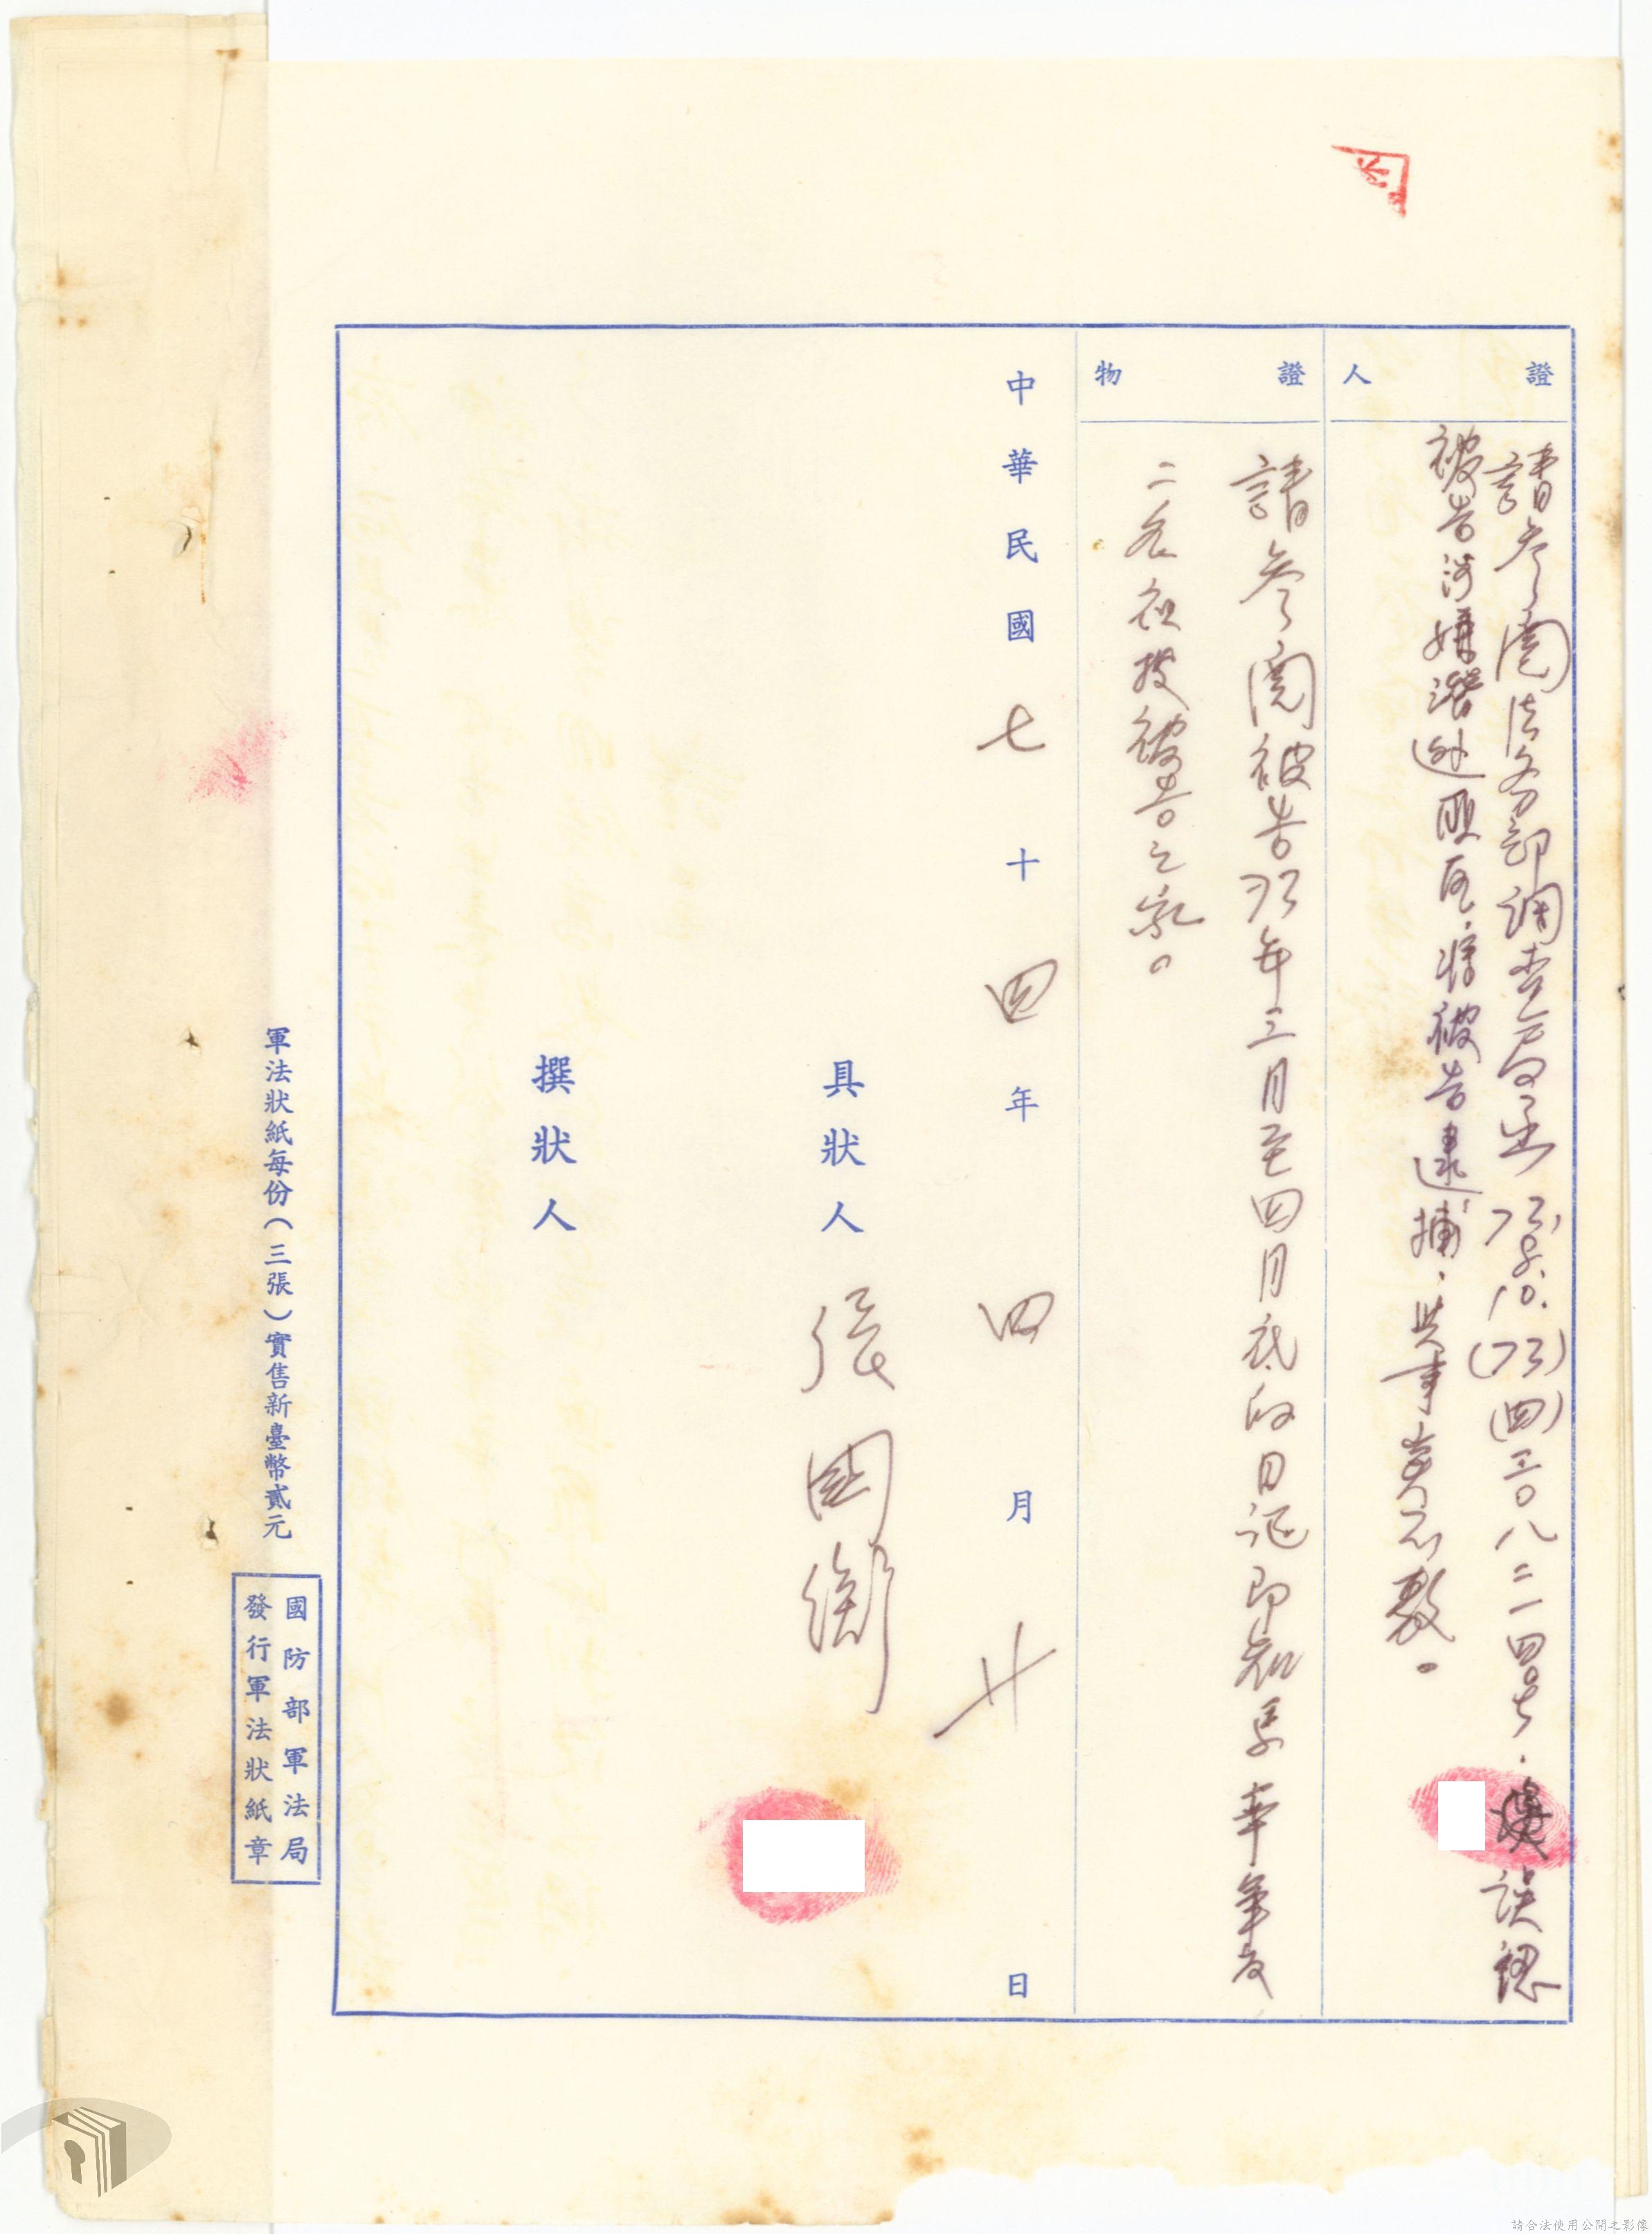 證人
請參閱法務部調查局函73.8.10.(73)(四)三〇八二一四號.誤認
被告涉嫌潛逃匪區.將被告逮捕.其事
證物
請參閱被告73年三月至四月底的日記即知
二名
被告之
中華民國七十四年四月廿日
具狀人 張國衡
撰狀人
軍法狀紙每份(三張)實售新臺幣貳元
國防部軍法局
發行軍法狀紙章
請合法使用公開之影像